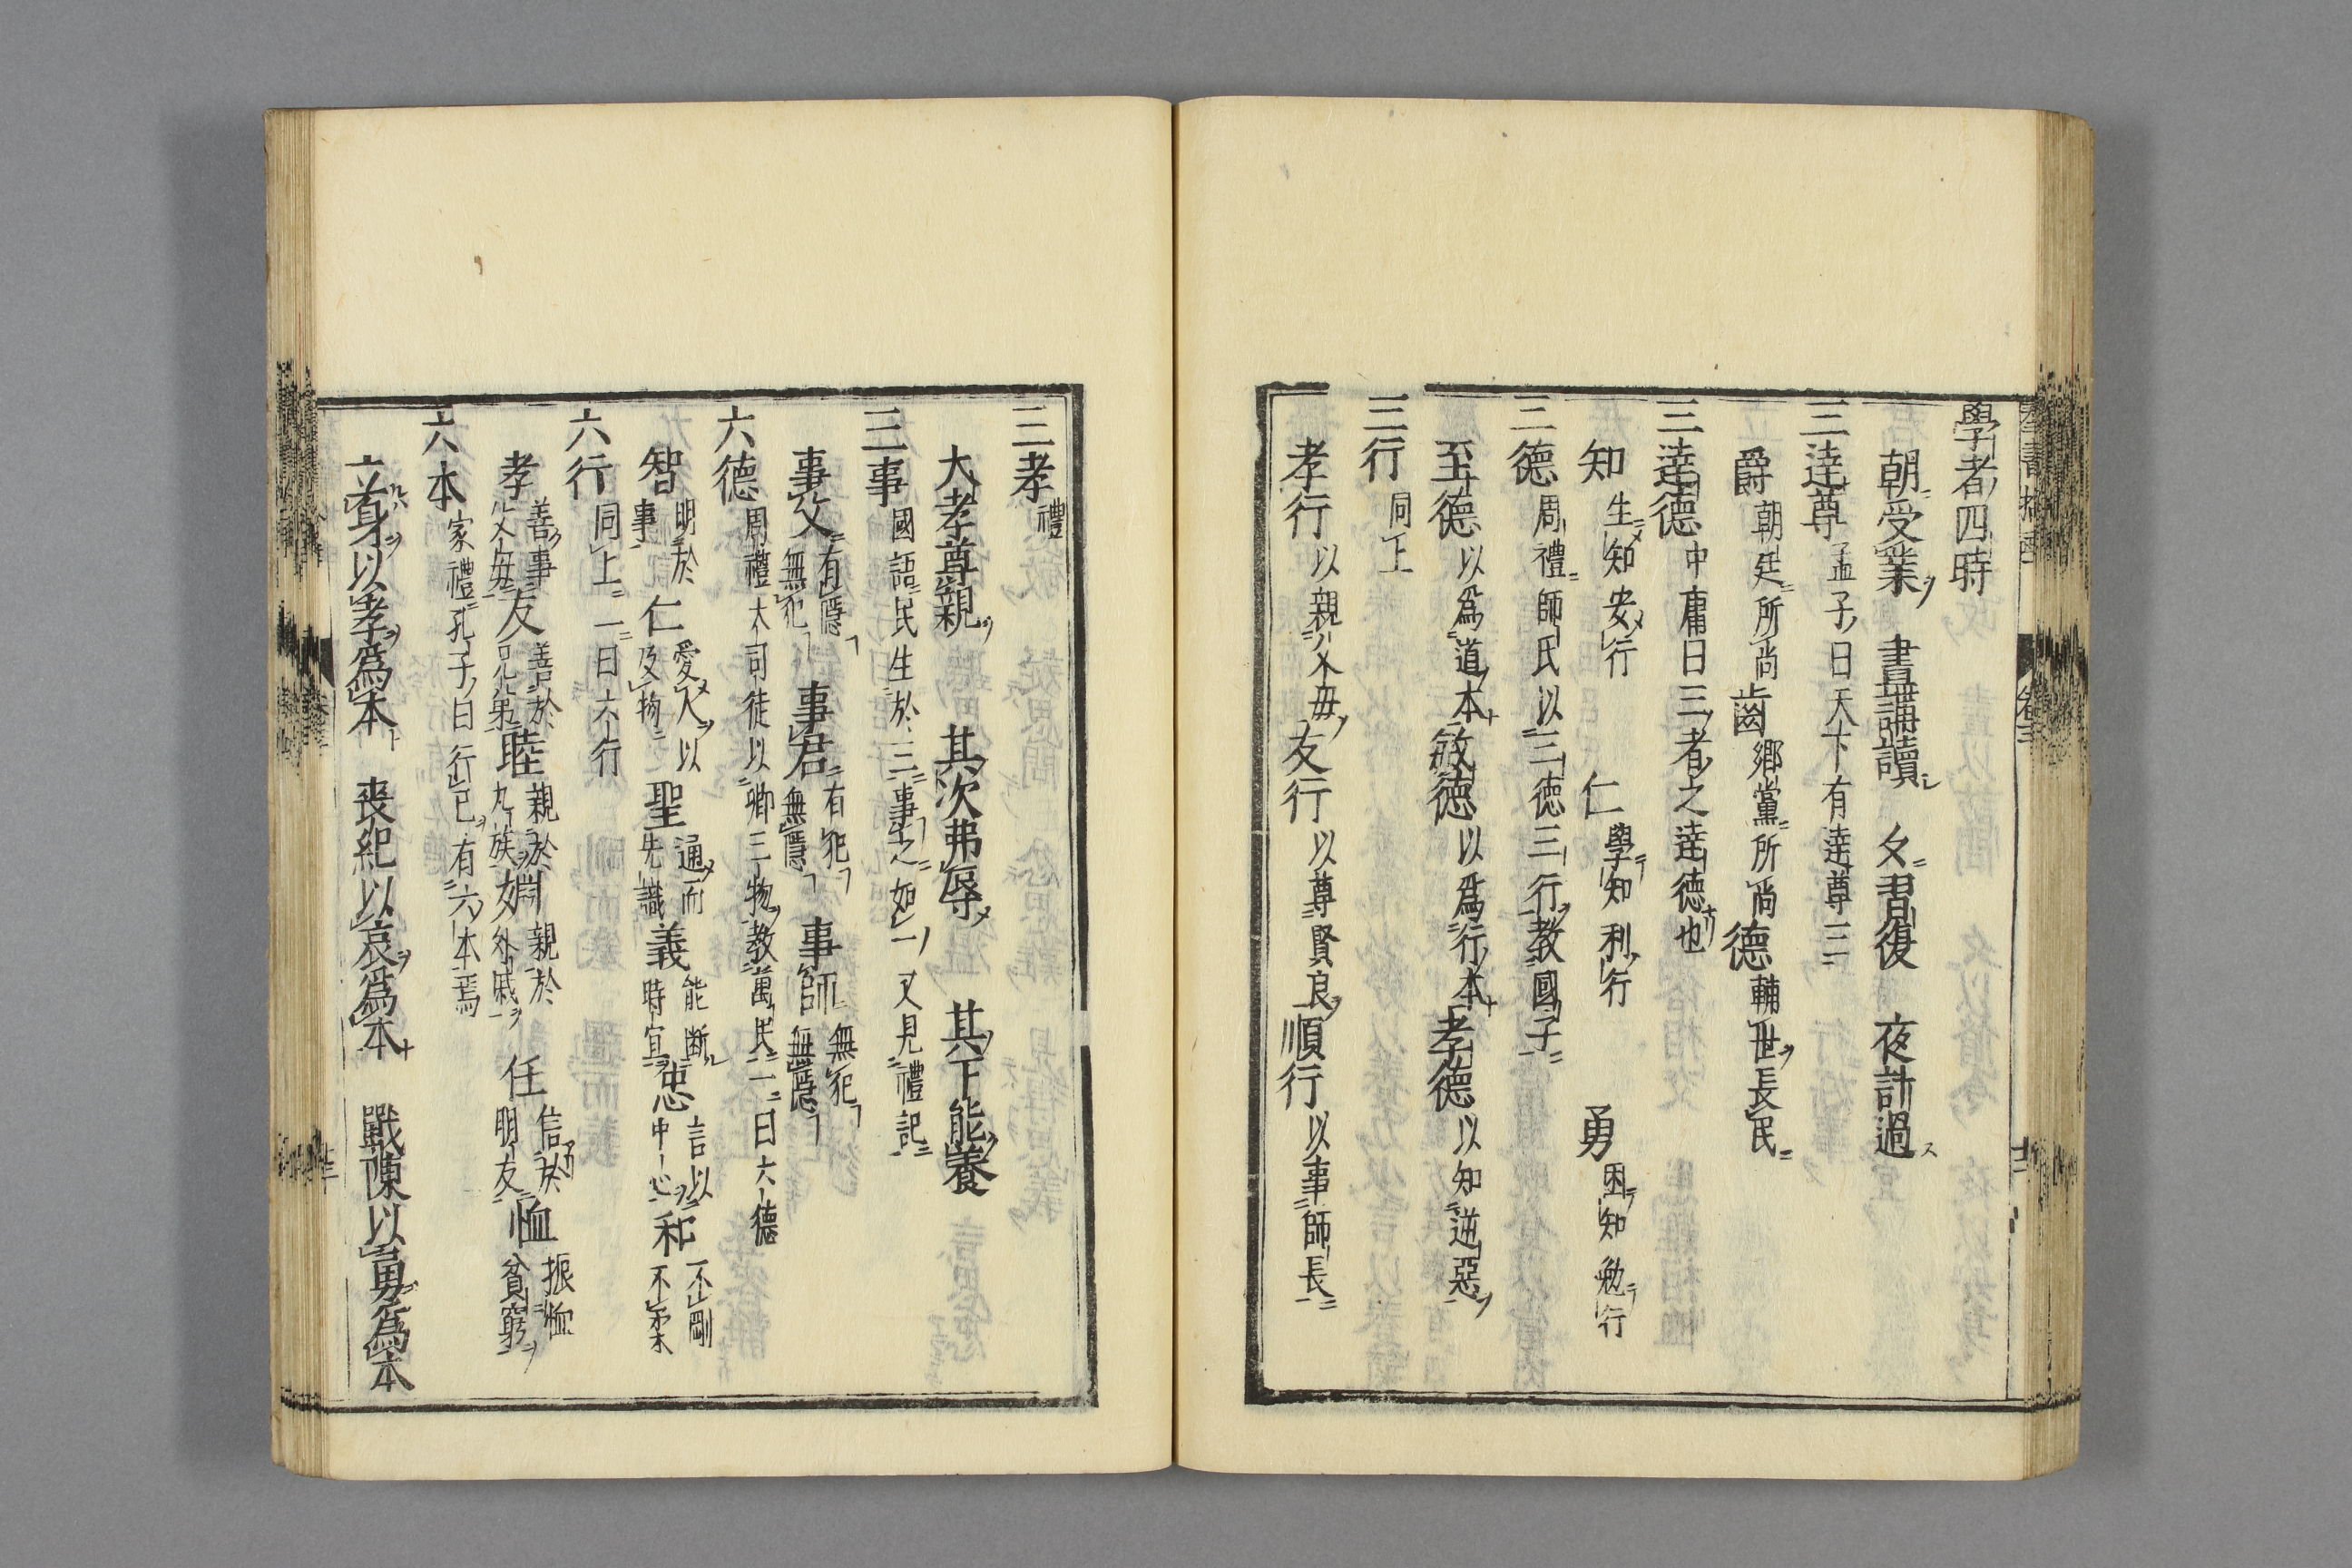 學者四時
朝受業 晝講讀 夕習復 夜計過
三達尊 孟子曰天下有達尊三
爵 朝廷所尚 齒 鄉黨所尚 德 輔世長民
三達德 中庸曰三者之達德也
知 生知安行 仁 學知利行 勇 困知勉行
三德 周禮師氏以三德三行教國子
至德 以爲道本 敏德 以爲行本 孝德 以知逆惡
三行 同上
孝行 以親父母 友行 以尊賢良 順行 以事師長
三孝 禮
大孝尊親 其次弗辱 其下能養
三事 國語民生於三事之如一又見禮記
事父 有隱無犯 事君 有犯無隱 事師 無犯無隱
六德 周禮大司徒以鄉三物教萬民一曰六德
智 明於事 仁 愛人以及物 聖 通而先識 義 能斷時宜 忠 言以中心 和 不剛不柔
六行 同上二曰六行
孝 善事父母 友 善於兄弟 睦 親於九族 婣 親於外戚 任 信於朋友 恤 振恤貧窮
六本 家禮孔子曰行己有六本焉
立身以孝爲本 喪紀以哀爲本 戰陳以勇爲本